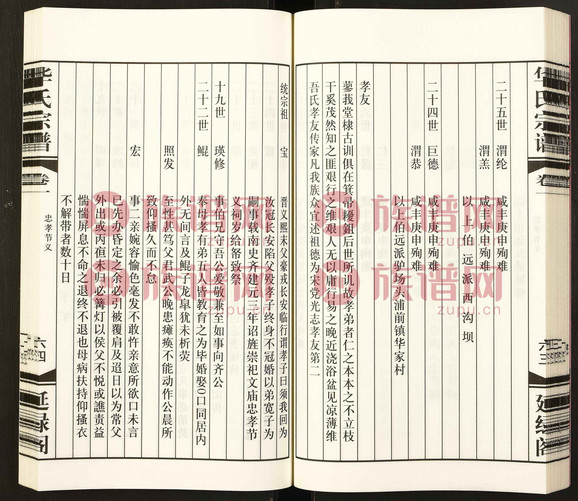 华氏宗谱
卷
六三
延缘阁
二十五世 渭纶 咸丰庚申殉难
渭羔 咸丰庚申殉难
以上伯远派西沟坝
二十四世 巨德 咸丰庚申殉难
渭恭 咸丰庚申殉难
以上伯远派驴场头浦前镇华家村
孝友
蓼莪堂棣古训俱在箕帚耰鉏后世所讥故孝弟者仁之本本之不立枝
干奚茂然知之匪艰行之维艰人无以庸行易之晚近浇浴盆见凉薄维
吾氏孝友传家凡我族众宜述祖德为宋党光志孝友第二
统宗祖 宝 晋义熙末父豪戍长安临行谓孝子曰须我回为
汝冠长安陷父殁孝子终身不冠婚以弟宽子为
嗣事载南史齐建元三年诏旌崇祀文庙忠孝节
义祠岁给帑致祭
十九世 瑛修 事伯兄守吾公爱敬兼至如事向齐公
二十二世 鲲 奉母孝有弟五人皆教育之为毕婚娶0口同居内
外无间言及鲲子龙皐犹未析荧
照发 至性甚笃父君武公晚患瘫痪不能动作公晨所
致仰搔久而不怠
宏 事二亲婉容愉色毫发不敢忤亲意所欲口未言
已先办昏定之余必引被覆肩及追日以为常父
外出或丙亱未归必篝灯以侯父不悦或譙责益
惴惴屏息不命之退不终不退也母病扶持仰搔衣
不解带者数十日
华氏宗谱
卷一
忠孝节义
六四
延缘阁
族谱网
族谱网